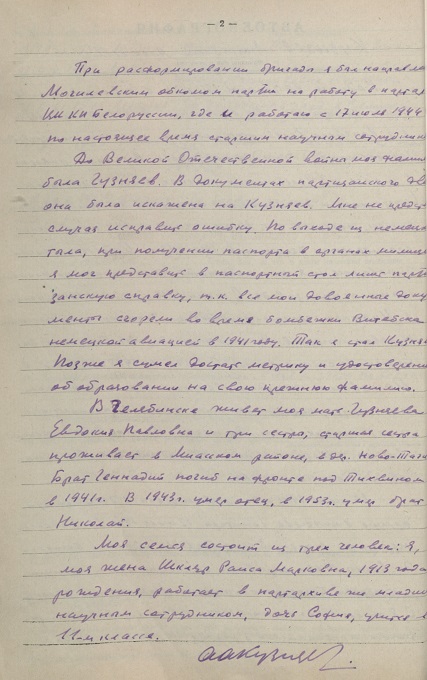 – 2 –
При расформировании бригады я был направлен
Могилевским обкомом партии на работу в партар
ЦК КП Белоруссии, где и работаю с 17 июля 1944
по настоящее время старшим научным сотрудник
До Великой Отечественной войны моя фамил
была Гузняев. В документах партизанского дв
она была искажена на Кузняев. Мне не предст
случая исправить ошибку. По выходе из немец
тыла, при получении паспорта в органах милиц
я мог представить в паспортный стол лишь парти
занскую справку, т.к. все мои довоенные доку
менты сгорели во время бомбежки Витебска
немецкой авиацией в 1941 году. Так я стал Кузняе
Позже я сумел достать метрику и удостоверени
об образовании на свою прежнюю фамилию.
В Челябинске живет моя мать Гузняева
Евдокия Павловна и три сестры, старшая сестра
проживает в Миасском районе, в дер. Ново-
Брат Геннадий погиб на фронте под Тихвином
в 1941 г. В 1943 г. умер отец, в 1953 г. умер брат
Николай.
Моя семья состоит из трех человек: я,
моя жена Раиса Марковна, 1913 года
рождения, работает в партархиве же младши
научным сотрудником, дочь Софья, учится в
11-м классе.